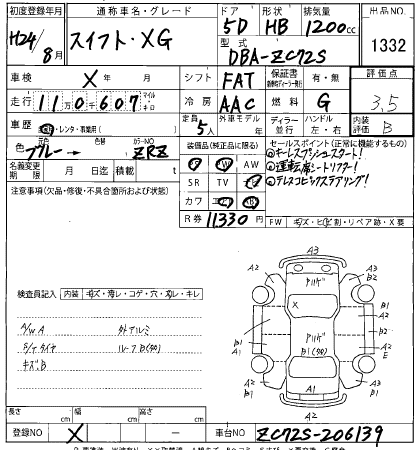 初度登録年月 通称車名・グレード ドア 形状 排気量 出品NO.
H24/8月 スイフト・XG 5D HB 1200cc 1332
型式 DBA-ZC72S
車検 X年 月 シフト FAT 保証書 有・無 評価点
走行 110607 マイル キロ 冷房 AAC 燃料 G 3.5
車歴 ・レンタ・事業用( ) 定員 5人 外車モデル 年 ディーラー 並行 ハンドル 左・右 内装評価 B
色 ブルー→ 色替 カラーNO ZRZ 装備品(純正品に限る) セールスポイント(正常に機能するもの)
名義変更期限 月 日迄 積載 t AW
①キーレスプッシュスタート!
②運転席シートリフター!
③テレスコピックステアリング!
注意事項(欠品・修復・不具合箇所および状態) SR TV
カワ
R券 11330円 FW キズ・ヒビ割・リペア跡・X要
検査員記入 内装 キズ・汚レ・コゲ・穴・スレ・キレ
A/W A 外アルミ
S/T タイヤ ルーフB(タワ)
キズ・B
A3
A2 A3
A2 B2
X
B1 B1
B2
B1 A1 B1(タワ) A2 E
A2 A2
B1 A1 B1
A2
長さ cm 幅 cm 高さ cm
登録NO X ー 車台NO ZC72S-206139